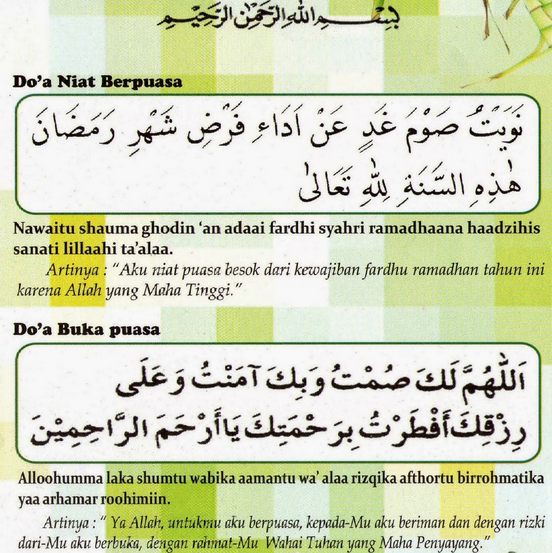 بِسْمِ اللهِ الرَّحْمٰنِ الرَّحِيْمِ
Do'a Niat Berpuasa
نَوَيْتُ صَوْمَ غَدٍ عَنْ اَدَاءِ فَرْضِ شَهْرِ رَمَضَانَ
هٰذِهِ السَّنَةِ لِلّٰهِ تَعَالىٰ
Nawaitu shauma ghodin 'an adaai fardhi syahri ramadhaana haadzihis
sanati lillaahi ta'alaa.
Artinya : "Aku niat puasa besok dari kewajiban fardhu ramadhan tahun ini
karena Allah yang Maha Tinggi."
Do'a Buka puasa
اَللّٰهُمَّ لَكَ صُمْتُ وَبِكَ آمَنْتُ وَعَلَى
رِزْقِكَ أَفْطَرْتُ بِرَحْمَتِكَ يَا أَرْحَمَ الرَّاحِمِيْنَ
Alloohumma laka shumtu wabika aamantu wa' alaa rizqika afthortu birrohmatika
yaa arhamar roohimiin.
Artinya : " Ya Allah, untukmu aku berpuasa, kepada-Mu aku beriman dan dengan rizki
dari-Mu aku berbuka, dengan rahmat-Mu Wahai Tuhan yang Maha Penyayang."